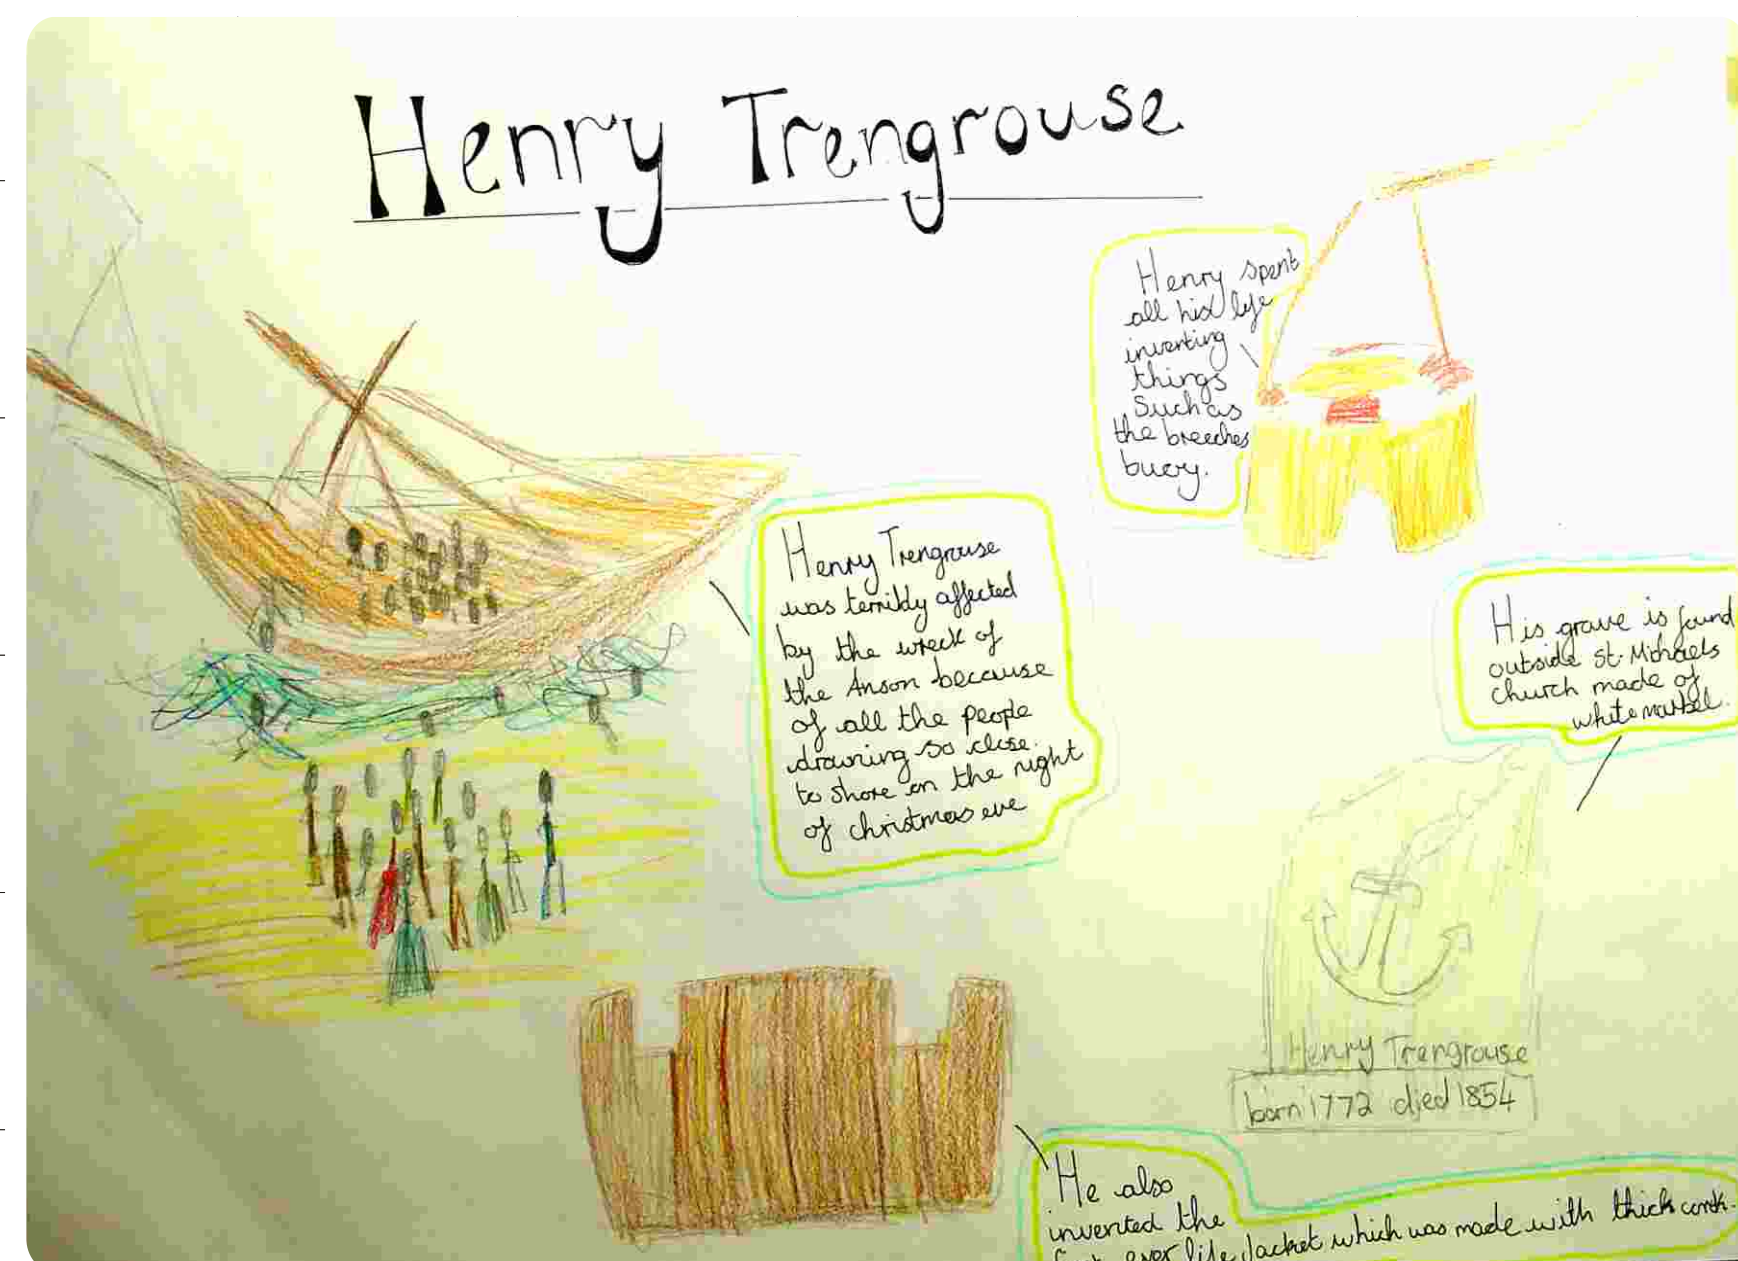 Henry Trengrouse
Henry spent
all his life
inventing
things
Such as
the breeches
buoy.
Henry Trengrouse
was terribly affected
by the wreck of
the Anson because
of all the people
drowning so close
to shore on the night
of christmas eve
His grave is found
outside St. Michaels
church made of
white marbel.
Henry Trengrouse
born 1772 died 1854
He also
invented the
first ever life Jacket which was made with thick cork.